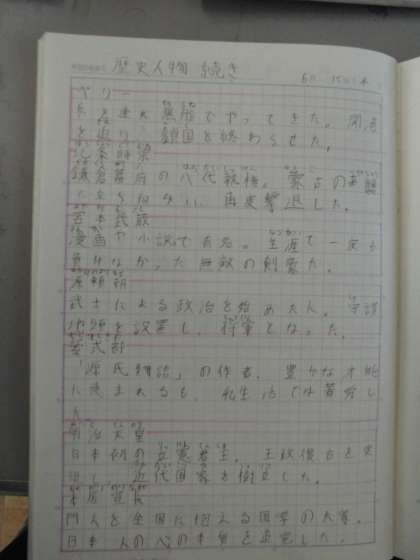 歴史人物 続き
ペリー
黒船でやってきた。開国
を迫り、鎖国を終わらせた。
北条時宗
鎌倉幕府の八代執権。蒙古の再襲
再度撃退した。
宮本武蔵
漫画や小説で有名。生涯で一度も
負けなかった無敵の剣豪だ。
源頼朝
武士による政治を始めた人。守護
地頭を設置し、将軍となった。
紫式部
「源氏物語」の作者。豊かな才能
に恵まれるも、私生活では苦労し
た
明治天皇
日本初の立憲君主。王政復古を実
現し、近代国家を樹立した。
本居宣長
門人を全国に抱える国学の大家。
日本人の心の本質を追究した。